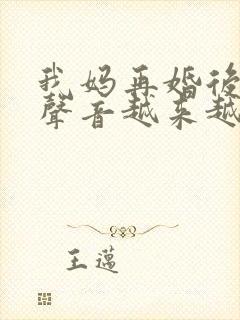 我妈再婚後
聲音越来越
王邁